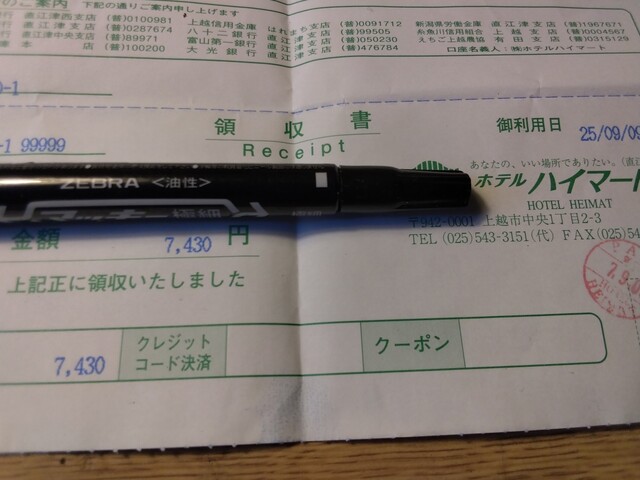 のご案内 下記の通りご案内申し上げます
直江津西支店 (普)0100981 上越信用金庫 はれまち支店 (普)0091712 新潟県労働金庫 直江津支店 (普)1967671
直江津支店 (普)0287674 八十二銀行 直江津支店 (普)99505 糸魚川信用組合 上越支店 (普)0004567
直江津中央支店 (普)89971 富山第一銀行 直江津支店 (普)050230 えちご上越農協 有田支店 (普)0315129
本店 (普)100200 大光銀行 直江津支店 (普)476784 口座名義人:㈱ホテルハイマート
-1
-1 99999
領収書
Receipt
御利用日 25/09/09
あなたの、いい場所でありたい。(直江
ホテルハイマート
HOTEL HEIMAT
〒942-0001 上越市中央1丁目2-3
TEL (025)543-3151(代) FAX(025)54
ZEBRA <油性>
マッキー極細
極細
金額 7,430 円
上記正に領収いたしました
7,430
クレジット
コード決済
クーポン